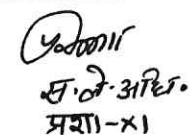 स.ले.अधि.
प्रशा-XI